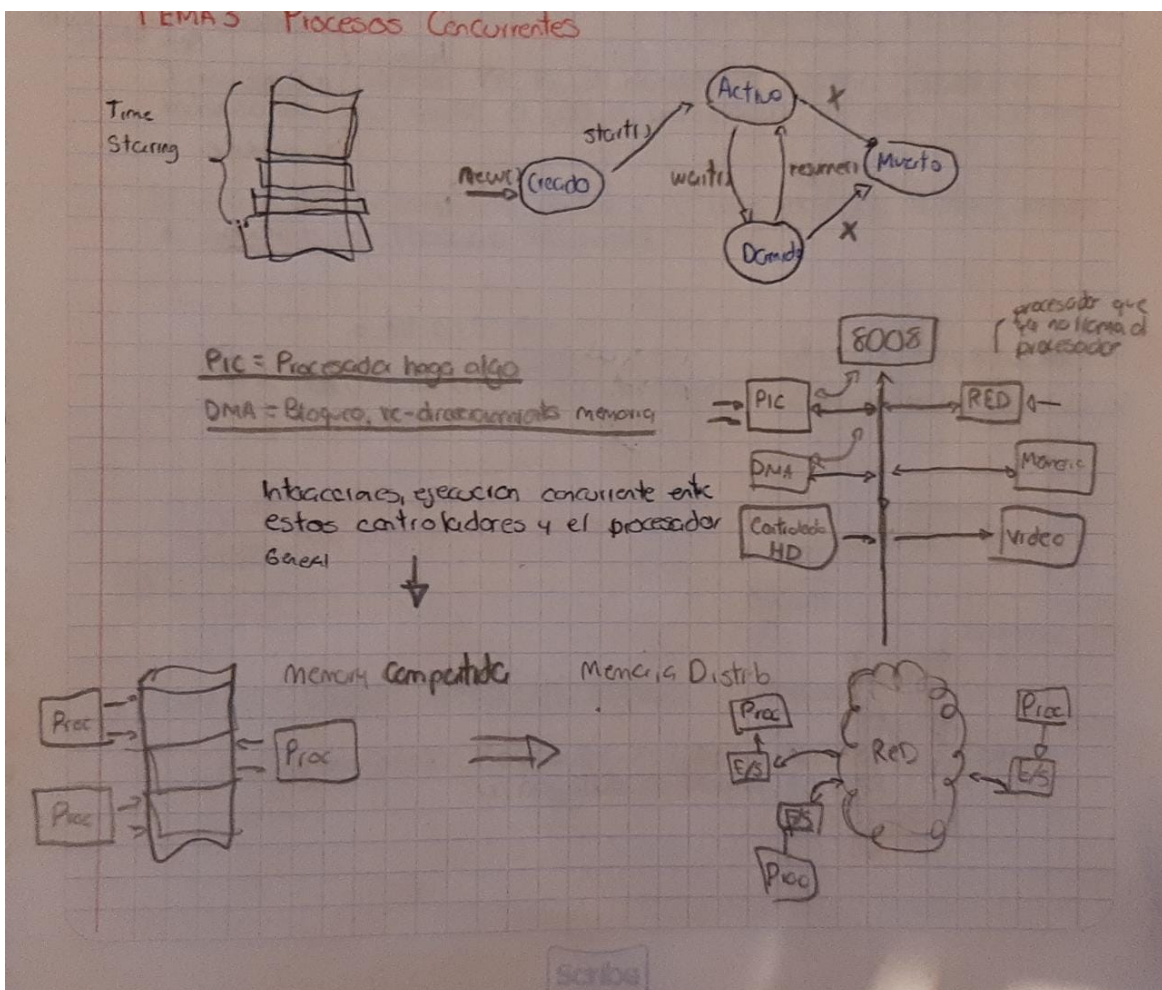 TEMA 3 Procesos Concurrentes
Time
Staring
new()
Creado
start()
Activo
wait()
resume()
Dormido
X
X
Muerto
8008
procesador que
ya no llama al
procesador
PIC = Procesador haga algo
DMA = Bloqueo, memoria
PIC
RED
DMA
Memoria
Controlado
HD
Video
Interacciones, ejecución concurrente entre
estos controladores y el procesador
General
Memory Compartida
Memoria Distrib
Proc
Proc
Proc
Proc
E/S
RED
Proc
E/S
E/S
Proc
Scribe